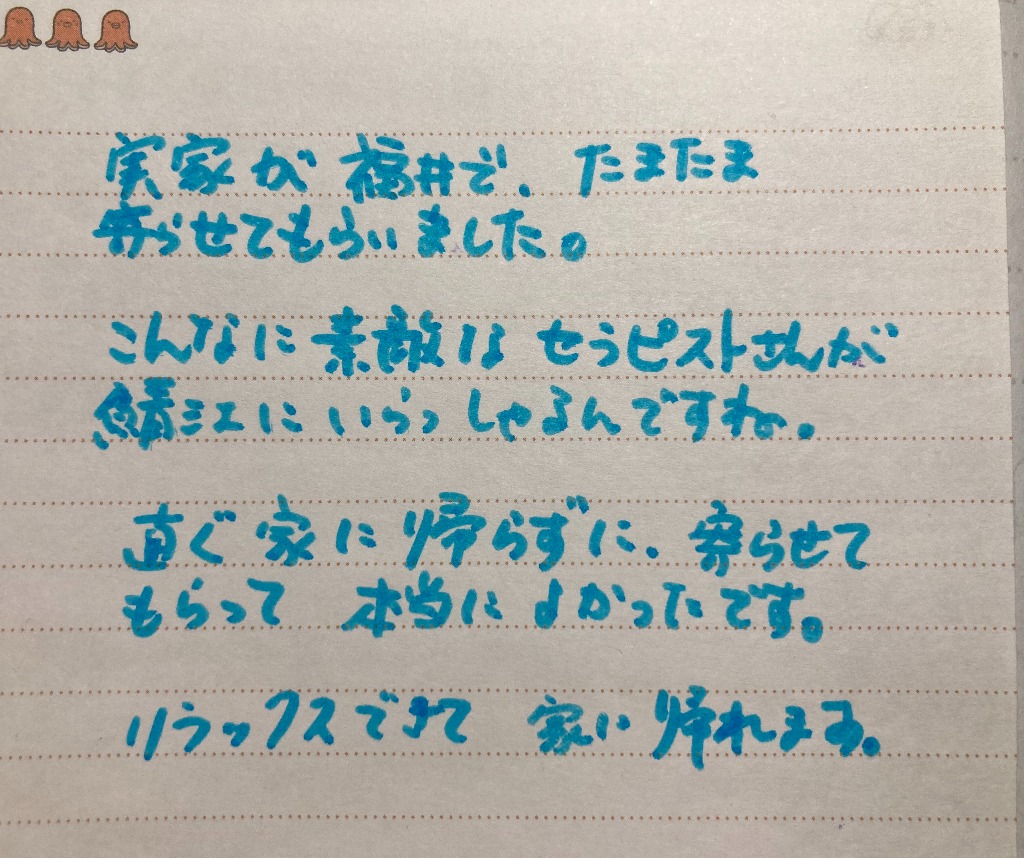 実家が福井で、たまたま
寄らせてもらいました。
こんなに素敵なセラピストさんが
鯖江にいらっしゃるんですね。
直ぐ家に帰らずに、寄らせて
もらって 本当によかったです。
リラックスできて 家に帰れます。